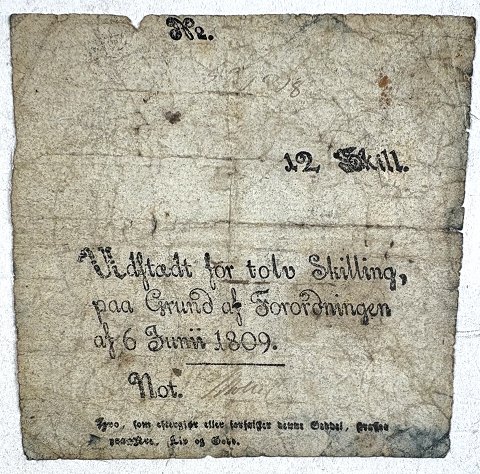 No.
12 Skill.
Udstædt for tolv Skilling,
paa Grund af Forordningen
af 6 Junii 1809.
Not.
som eftergiør eller forfalsker denne Seddel, straffes
paa Ære, Liv og Gods.